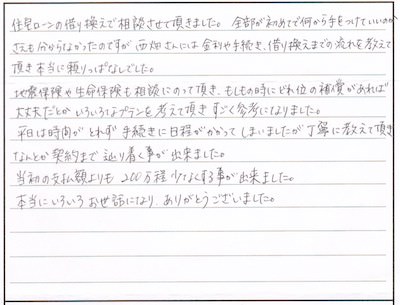 住宅ローンの借り換えで相談させて頂きました。全部が初めてで何から手をつけていいのか
さえも分からなかったのですが西畑さんには金利や手続き、借り換えまでの流れを教えて
頂き本当に頼りっぱなしでした。
地震保険や生命保険も相談にのって頂き、もしもの時にどれ位の補償があれば
大丈夫だとかいろいろなプランを考えて頂きすごく参考になりました。
平日は時間がとれず手続きに日程がかかってしまいましたが丁寧に教えて頂き
なんとか契約まで辿り着く事が出来ました。
当初の支払額よりも200万程少なくする事が出来ました。
本当にいろいろお世話になり、ありがとうございました。